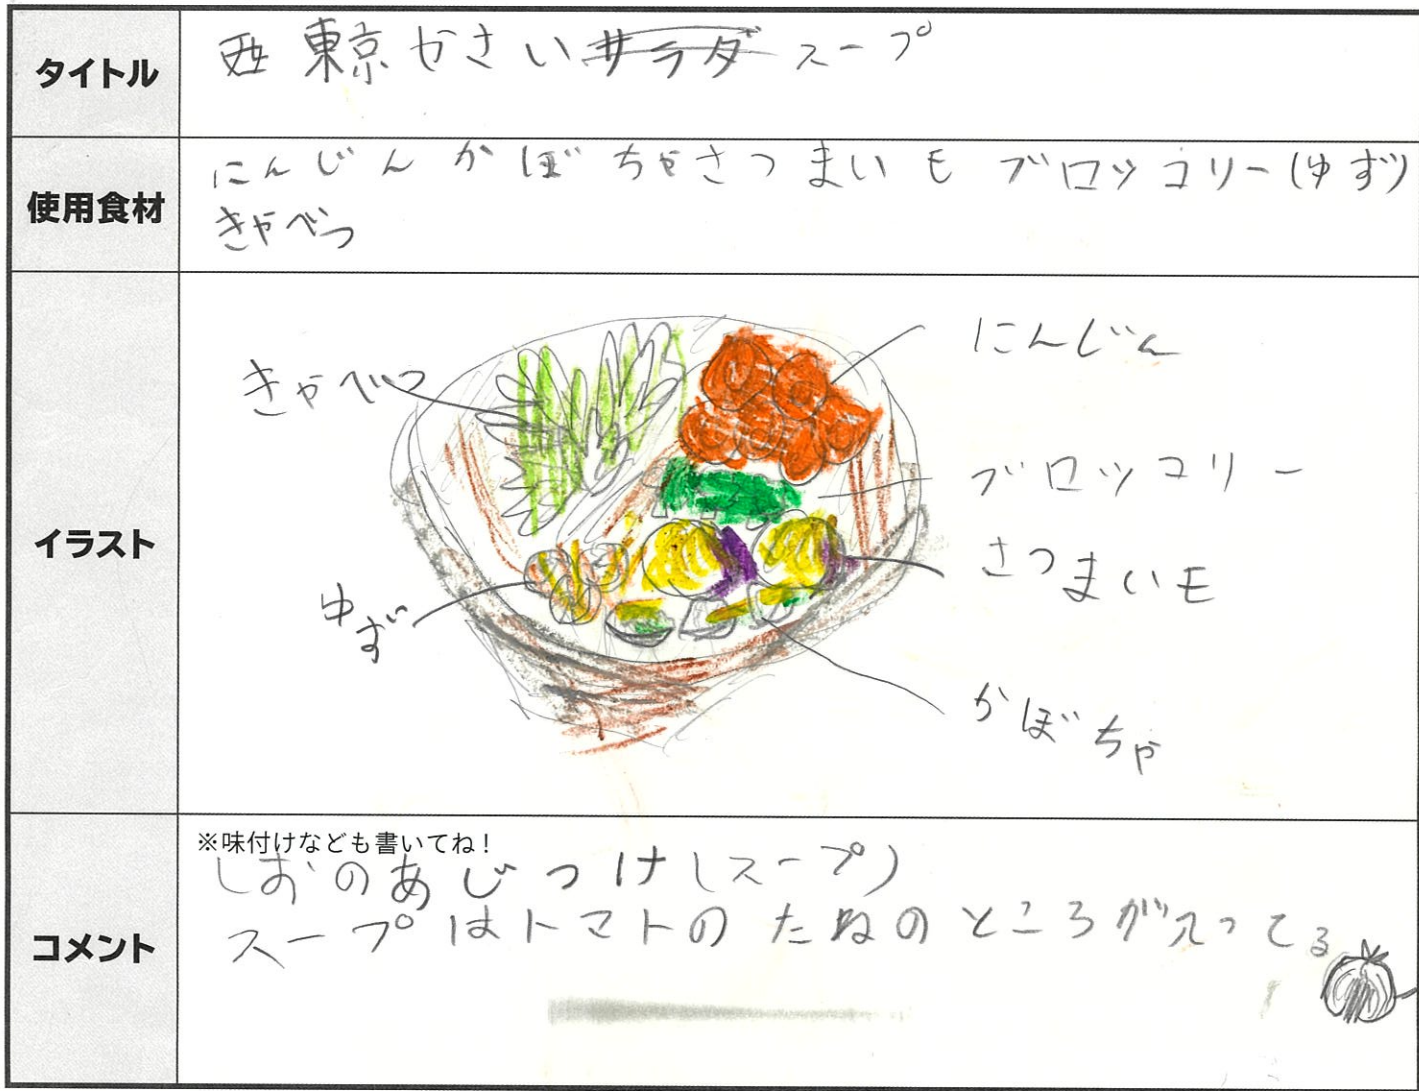 タイトル
西東京かさいサラダスープ
使用食材
にんじん かぼちゃさつまいも ブロッコリー(ゆず)
きゃべつ
イラスト
きゃべつ
にんじん
ブロッコリー
さつまいも
ゆず
かぼちゃ
コメント
※味付けなども書いてね!
しおのあじつけ(スープ)
スープはトマトのたねのところが入ってる